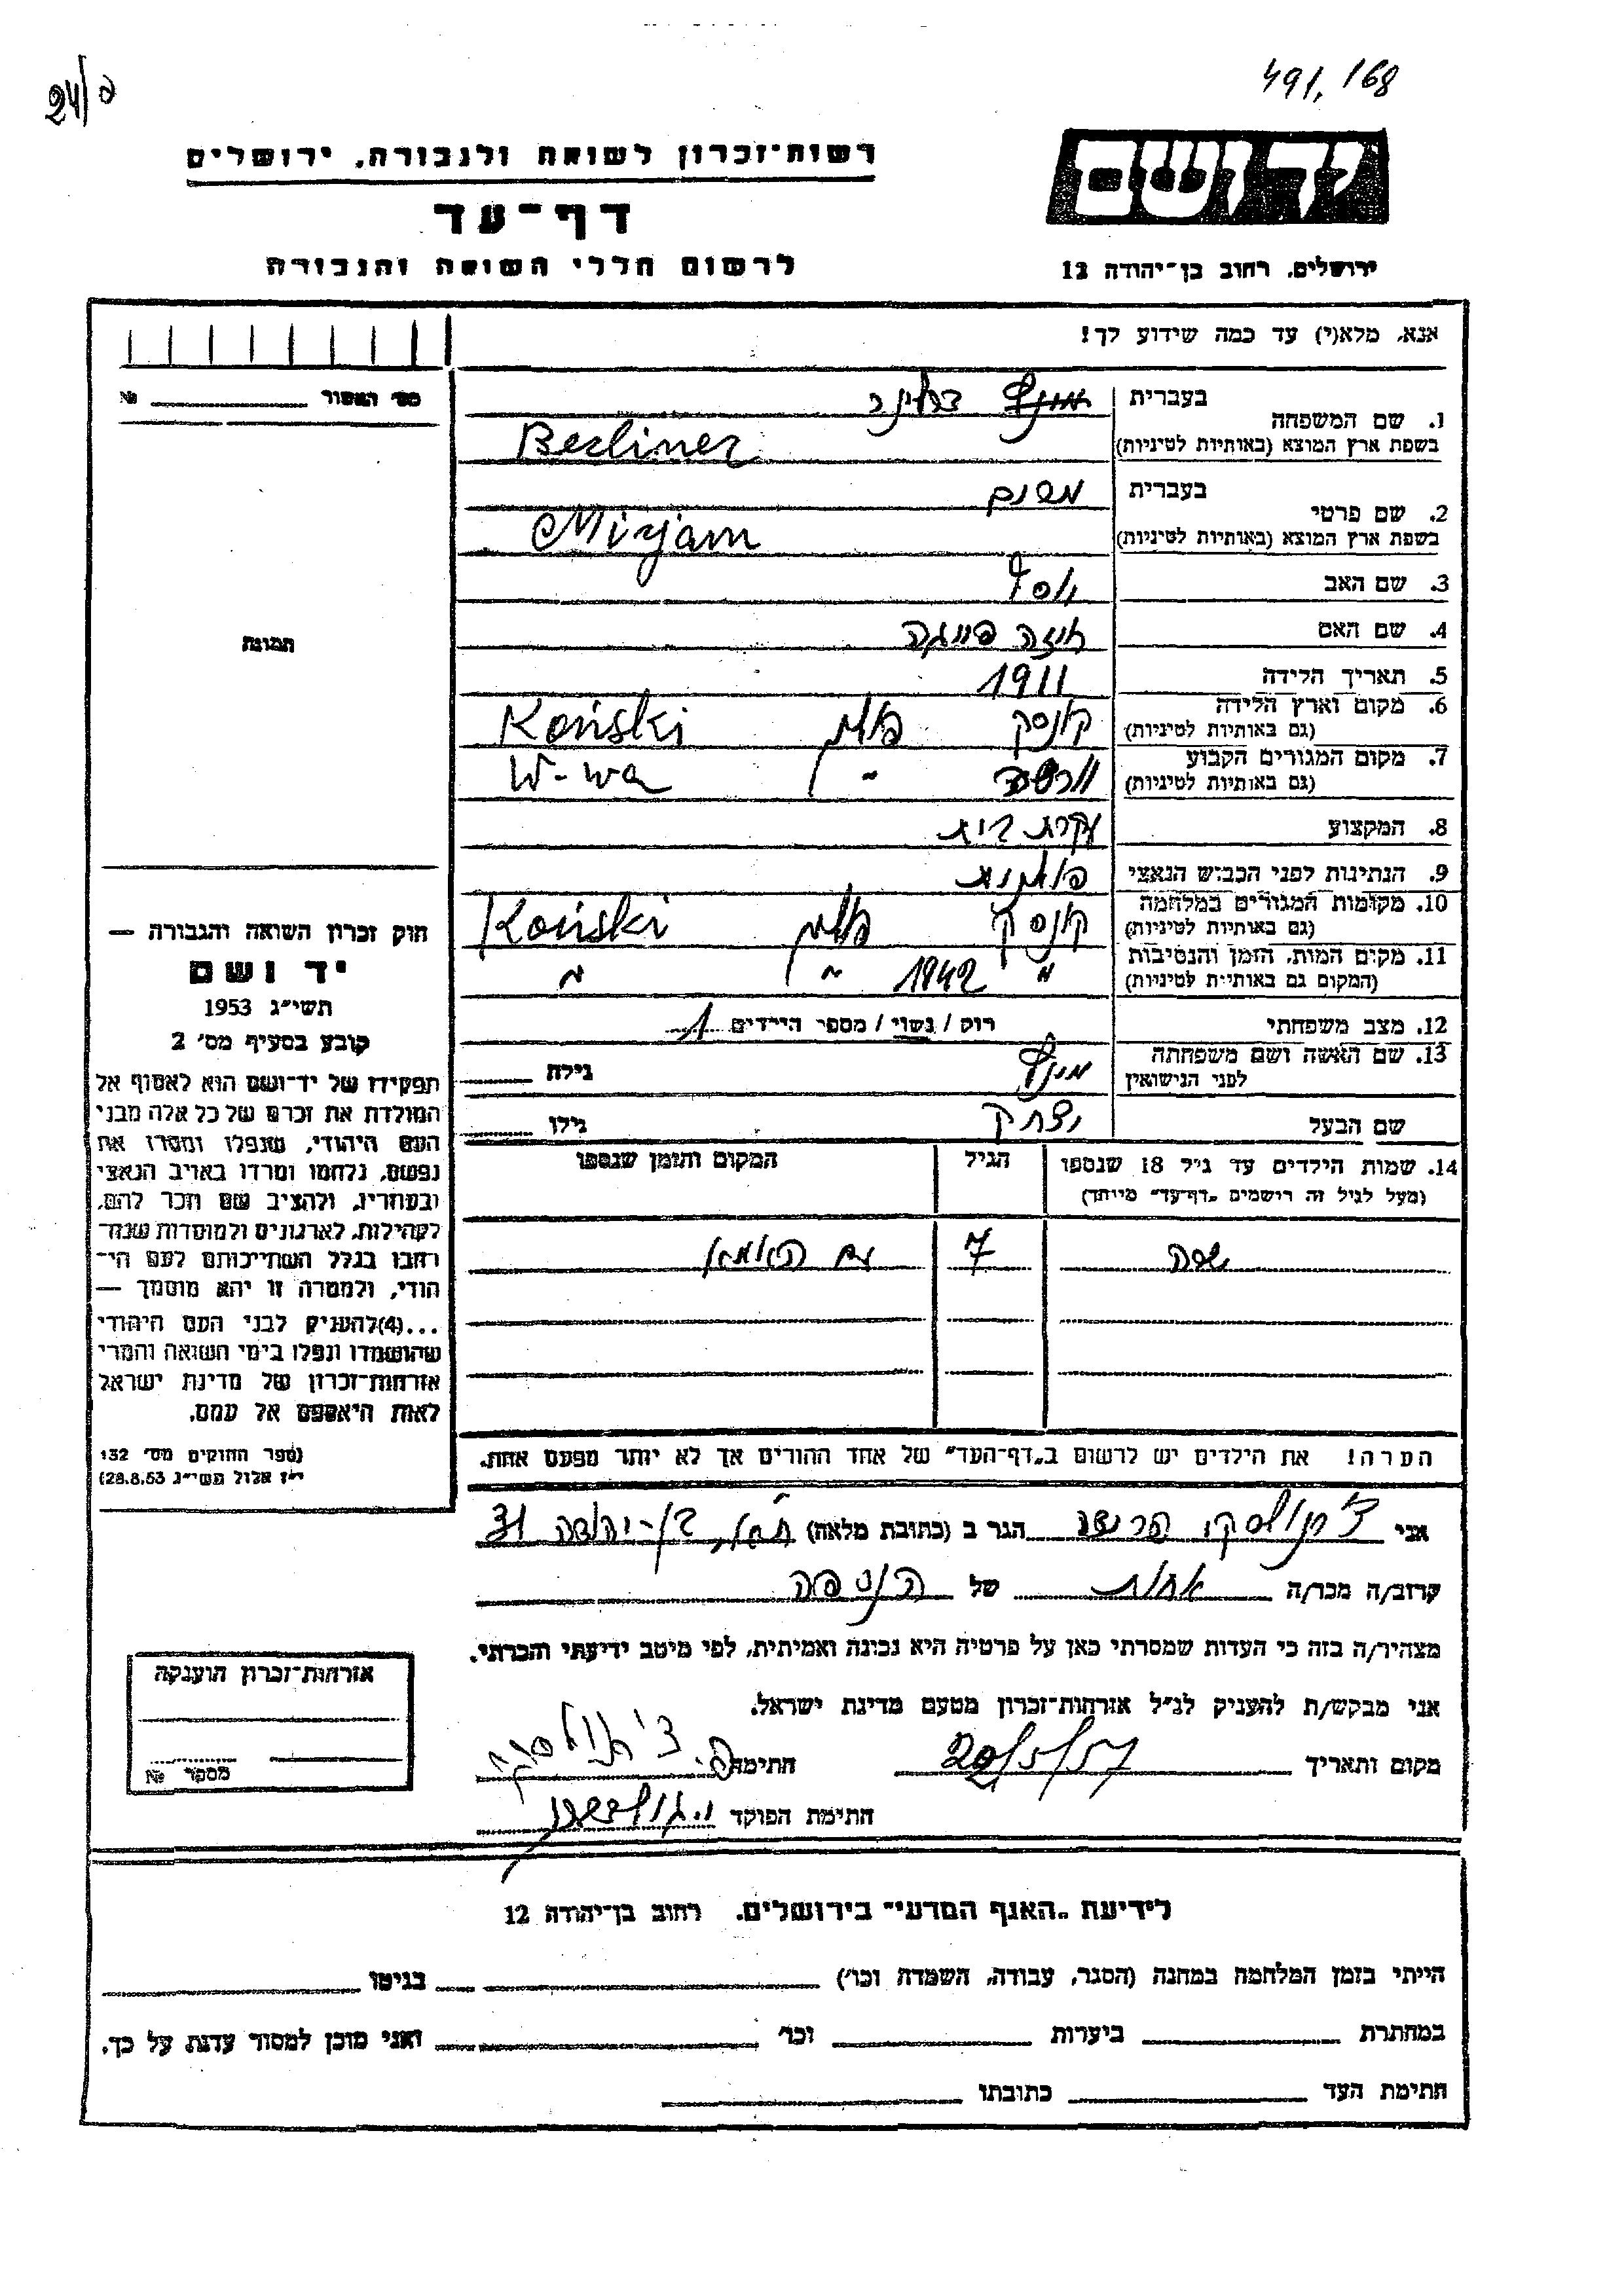 491,168
24/ס
רשות-זכרון לשואה ולגבורה, ירושלים
יד ושם
דף-עד
לרשום חללי השואה והגבורה
ירושלים, רחוב בן-יהודה 12
אנא, מלא(י) עד כמה שידוע לך!
מס' האסור №
1. שם המשפחה בעברית ברלינר
בשפת ארץ המוצא (באותיות לטיניות) Berliner
2. שם פרטי בעברית מרים
בשפת ארץ המוצא (באותיות לטיניות) Mirjam
3. שם האב יוסף
4. שם האם פייגה
5. תאריך הלידה 1911
6. מקום וארץ הלידה (גם באותיות לטיניות) קונסק פולין Koński
7. מקום המגורים הקבוע (גם באותיות לטיניות) וורשה " W-wa
8. המקצוע עקרת בית
9. הנתינות לפני הכבוש הנאצי פולנית
10. מקומות המגורים במלחמה (גם באותיות לטיניות) קונסק פולין Koński
11. מקום המות, הזמן והנסיבות (המקום גם באותיות לטיניות) " 1942 " "
12. מצב משפחתי רווק / נשוי / מספר הילדים 1
13. שם האשה ושם משפחתה לפני הנישואין גילה
שם הבעל יצחק גילו
14. שמות הילדים עד גיל 18 שנספו (מעל לגיל זה רישמים "דף-עד" מיוחד) הגיל המקום והזמן שנספו
7 עם האמא
הערה! את הילדים יש לרשום ב"דף-העד" של אחד ההורים אך לא יותר מפעם אחת.
תמונה
חוק זכרון השואה והגבורה —
יד ושם
תשי"ג 1953
קובע בסעיף מס' 2
תפקידו של יד-ושם הוא לאסוף אל
המולדת את זכרם של כל אלה מבני
העם היהודי, שנפלו ומסרו את
נפשם, נלחמו ומרדו באויב הנאצי
ובעוזריו, ולהציב שם וזכר להם,
לקהילות, לארגונים ולמוסדות שנח-
רבו בגלל השתייכותם לעם הי-
הודי, ולמטרה זו יהא מוסמך —
...(4)להעניק לבני העם היהודי
שהושמדו ונפלו בימי השואה והמרי
אזרחות-זכרון של מדינת ישראל
לאות היאספם אל עמם.
(ספר החוקים מס' 132
י"ז אלול תשי"ג 28.8.53)
אני הגר ב (כתובת מלאה) בן-יהודה 31
קרוב/ה מכר/ה אחות של הנספה
מצהיר/ה בזה כי העדות שמסרתי כאן על פרטיה היא נכונה ואמיתית, לפי מיטב ידיעתי והכרתי.
אני מבקש/ת להעניק לנ"ל אזרחות-זכרון מטעם מדינת ישראל.
מקום ותאריך 20/5/57 חתימה
חתימת הפוקד
אזרחות-זכרון הוענקה
מספר №
לידיעת "האגף המדעי" בירושלים, רחוב בן-יהודה 12
הייתי בזמן המלחמה במחנה (הסגר, עבודה, השמדה וכו') בגיטו
במחתרת ביערות וכו' ואני מוכן למסור עדות על כך.
חתימת העד כתובתו